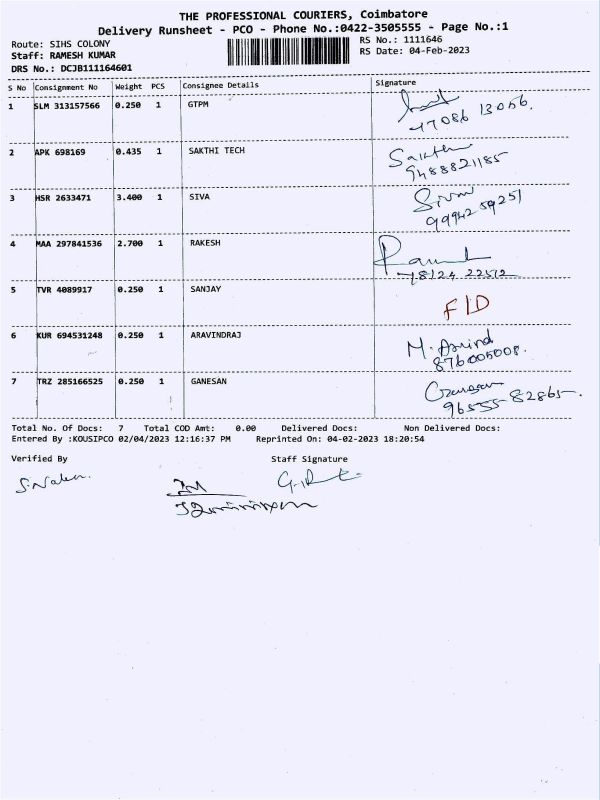 THE PROFESSIONAL COURIERS, Coimbatore
Delivery Runsheet - PCO - Phone No.:0422-3505555 - Page No.:1
Route: SIHS COLONY RS No.: 1111646
Staff: RAMESH KUMAR RS Date: 04-Feb-2023
DRS No.: DCJB111164601
S No Consignment No Weight PCS Consignee Details Signature
1 SLM 313157566 0.250 1 GTPM
77086 13056.
2 APK 698169 0.435 1 SAKTHI TECH Sakthi
9488821185
3 HSR 2633471 3.400 1 SIVA Siva
99942 59251
4 MAA 297841536 2.700 1 RAKESH
78124 22512
5 TVR 4089917 0.250 1 SANJAY F/D
6 KUR 694531248 0.250 1 ARAVINDRAJ M. Arvind
876005008.
7 TRZ 285166525 0.250 1 GANESAN Ganesan
96555-82865-.
Total No. Of Docs: 7 Total COD Amt: 0.00 Delivered Docs: Non Delivered Docs:
Entered By :KOUSIPCO 02/04/2023 12:16:37 PM Reprinted On: 04-02-2023 18:20:54
Verified By Staff Signature